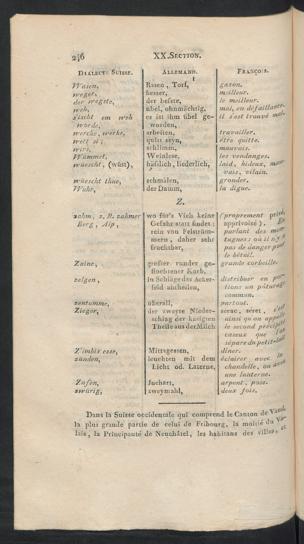 246 XX. SECTION.
DIALECT: SUISSE. ALLEMAND. FRANÇOIS.
Wasen, Rasen, Torf, gazon.
weger, besser, meilleur.
der wegste, der beste, le meilleur.
weh, übel, ohnmächtig, mal, en défaillance.
es ist ihm übel ge- il s'est trouvé mal.
worde, worden,
werche, werke, arbeiten, travailler.
wett si; quitt seyn, être quitte.
wirs, schlimm, mauvais.
Wümmet, Weinlese, les vendanges.
wüescht, (wüst), häßlich, liederlich, laid, hideux, mau-
vais, vilain.
wüescht thüe, schmälen, gronder.
Wuhr, der Damm, la digue.
Z.
zahm, z. B. zahmer wo für's Vieh keine (proprement privé,
Berg, Alp, Gefahr statt findet: apprivoisé). En
rein von Felsträm- parlant des mon-
mern, daher sehr tagnes: où il n'y a
fruchtbar, pas de danger pour
le bétail.
Zaine, großer runder ge- grande corbeille.
flochtener Korb,
zelgen, in Schläge das Acker- distribuer en por-
feld abtheilen, tions un pâturage
commun.
zentumme, überall, partout.
Zieger, der zweyte Nieder- serac, séret, c'est
schlag der käsigen ainsi qu'on appelle
Theile aus der Milch le second précipité
caseux que l'on
sépare du petit-lait.
Z'imbis esse, Mittagessen, dîner.
zünden, leuchten mit dem éclairer avec la
Licht od. Laterne, chandelle, ou avec
une lanterne.
Juchert, arpent, pose.
zwürig, zweymahl, deux fois.
Dans la Suisse occidentale qui comprend le Canton de Vaud,
la plus grande partie de celui de Fribourg, la moitié du Va-
lais, la Principauté de Neuchâtel, les habitans des villes, et